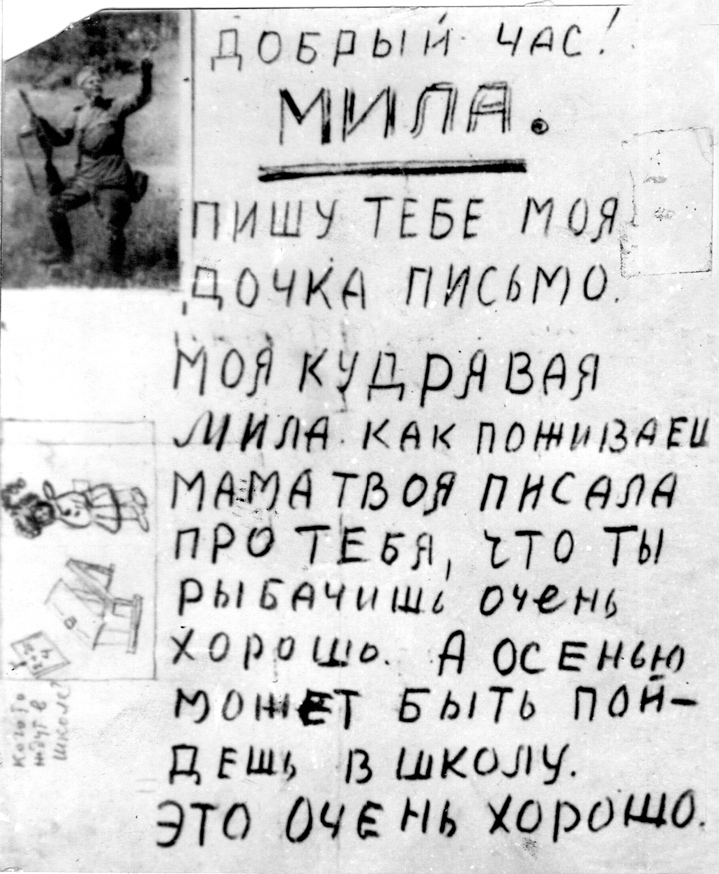 ДОБРЫЙ ЧАС!
МИЛА.
ПИШУ ТЕБЕ МОЯ
ДОЧКА ПИСЬМО.
МОЯ КУДРЯВАЯ
МИЛА. КАК ПОЖИВАЕШ
МАМА ТВОЯ ПИСАЛА
ПРО ТЕБЯ, ЧТО ТЫ
РЫБАЧИШЬ ОЧЕНЬ
ХОРОШО. А ОСЕНЬЮ
МОЖЕТ БЫТЬ ПОЙ-
ДЕШЬ В ШКОЛУ.
ЭТО ОЧЕНЬ ХОРОШО.
кого то
ждут в
школе?